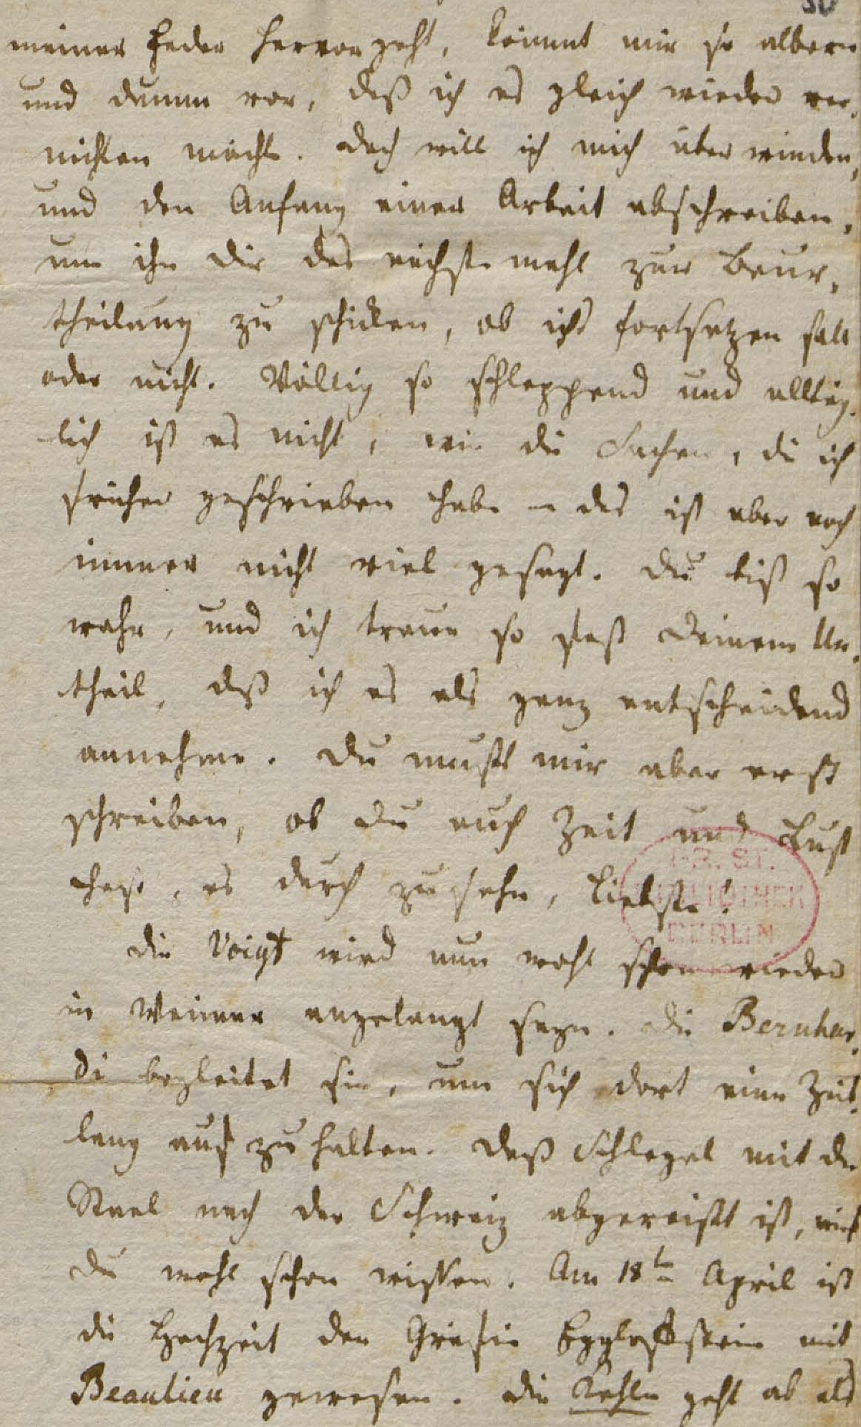 30
meiner Feder hervorgeht, kömmt mir so albern
und dumm vor, daß ich es gleich wieder ver-
nichten möchte. Doch will ich mich überwinden,
und den Anfang einer Arbeit abschreiben,
um ihn dir das nächste mahl zur Beur-
theilung zu schicken, ob ichs fortsetzen soll
oder nicht. Völlig so schleppend und alltäg-
lich ist es nicht, wie die Sachen, die ich
früher geschrieben habe – das ist aber noch
immer nicht viel gesagt. Du bist so
wahr, und ich traue so fest deinem Ur-
theil, daß ich es als ganz entscheidend
annehme. Du mußt mir aber erst
schreiben, ob du auch Zeit und Lust
hast, es durch zu sehn, Liebste!
Die Voigt wird nun wohl schon wieder
in Weimar angelangt seyn. Die Bernhar-
di begleitet sie, um sich dort eine Zeit-
lang auf zu halten. Daß Schlegel mit der
Stael nach der Schweiz abgereißt ist, wirst
du wohl schon wissen. Am 18ten April ist
die Hochzeit der Gräfin Egglofstein mit
Beaulieu gewesen. Die geht ab als
PR. ST.
BIBLIOTHEK
BERLIN